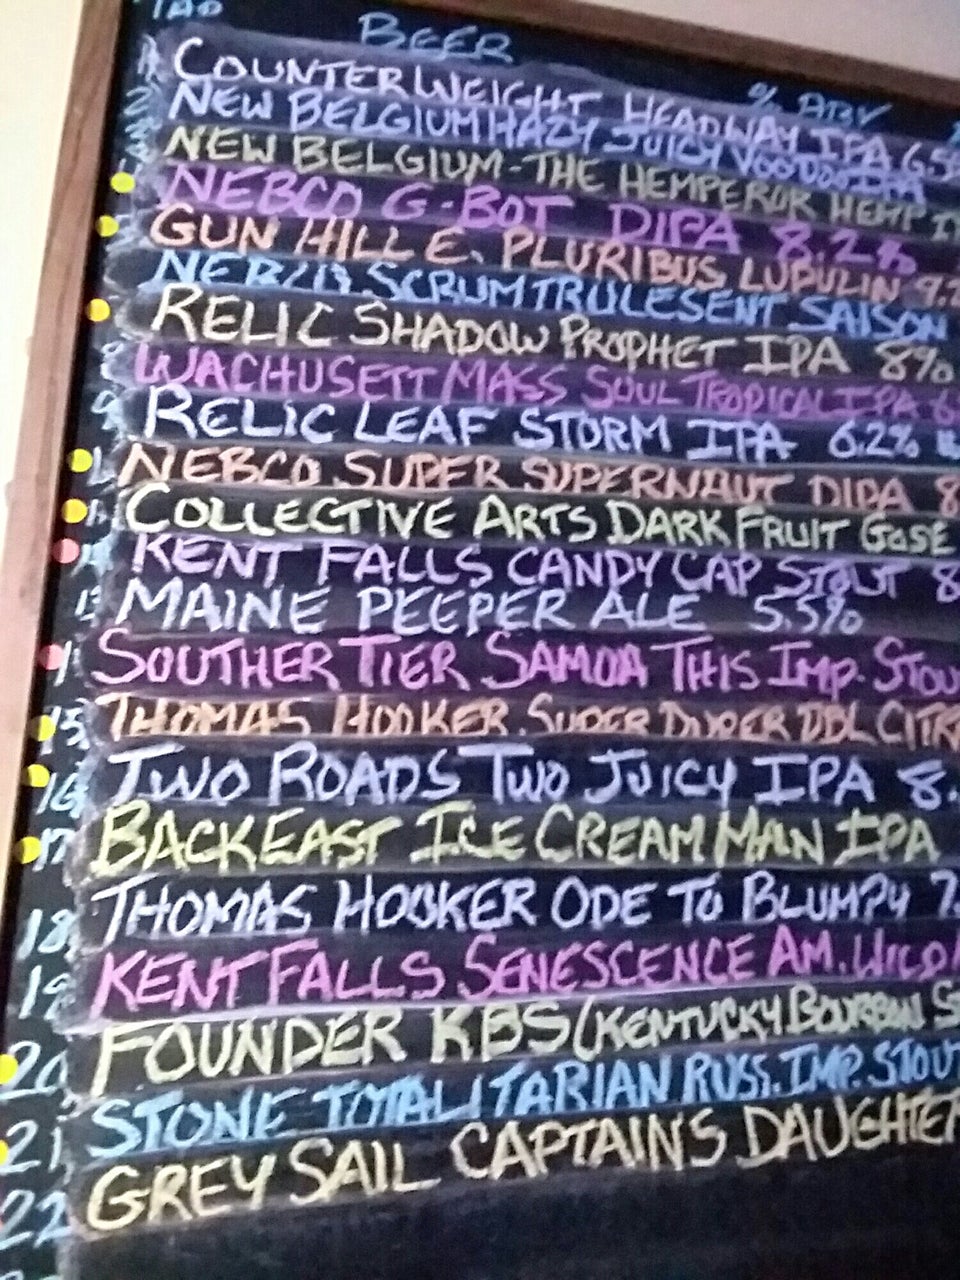 TAP BEER % ABV
1 COUNTER WEIGHT HEADWAY IPA 6.5
2 NEW BELGIUM HAZY JUICY VOODOO IPA
3 NEW BELGIUM - THE HEMPEROR HEMP
NEBCO G-BOT DIPA 8.2%
GUN HILL E. PLURIBUS LUBULIN 9.
SCRUMTRULESENT SAISON
RELIC SHADOW PROPHET IPA 8%
8 WACHUSETT MASS SOUL TROPICAL IPA 6
9 RELIC LEAF STORM IPA 6.2%
NEBCO SUPER SUPERNAUT DIPA 8
COLLECTIVE ARTS DARK FRUIT GOSE
KENT FALLS CANDY CAP STOUT 8
13 MAINE PEEPER ALE 5.5%
SOUTHER TIER SAMOA THIS IMP. STOU
15 THOMAS HOOKER SUPER DUPER DBL CITR
16 TWO ROADS TWO JUICY IPA 8.
17 BACK EAST ICE CREAM MAN IPA
18 THOMAS HOOKER ODE TO BLUMPY 7.
19 KENT FALLS SENESCENCE AM. WILD
20 FOUNDER KBS (KENTUCKY BOURBON S
21 STONE TOTALITARIAN RUSS. IMP. STOUT
22 GREY SAIL CAPTAINS DAUGHTER